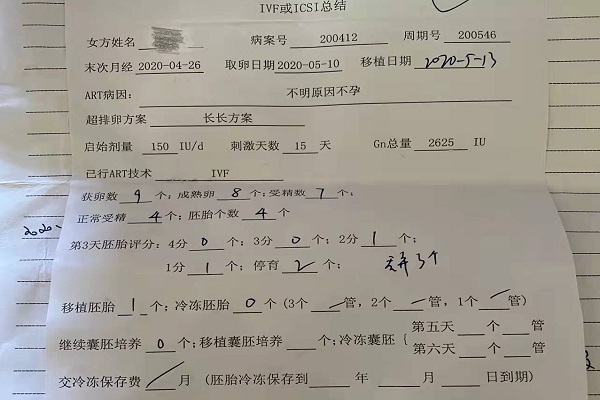 IVF或ICSI总结
女方姓名 病案号 200412 周期号 200546
末次月经 2020-04-26 取卵日期 2020-05-10 移植日期 2020-5-13
ART病因: 不明原因不孕
超排卵方案 长长方案
启始剂量 150 IU/d 刺激天数 15 天 Gn总量 2625 IU
已行ART技术 IVF
获卵数 9 个;成熟卵 8 个;受精数 7 个;
正常受精 4 个;胚胎个数 4 个
第3天胚胎评分:4分 0 个;3分 0 个;2分 1 个;
1分 1 个;停育 2 个; 丢弃3个
移植胚胎 1 个;冷冻胚胎 0 个(3个 / 管,2个 / 管,1个 / 管)
继续囊胚培养 0 个;移植囊胚培养 个;冷冻囊胚{第五天 个 管
第六天 个 管
交冷冻保存费 / 月 (胚胎冷冻保存到 年 月 日到期)